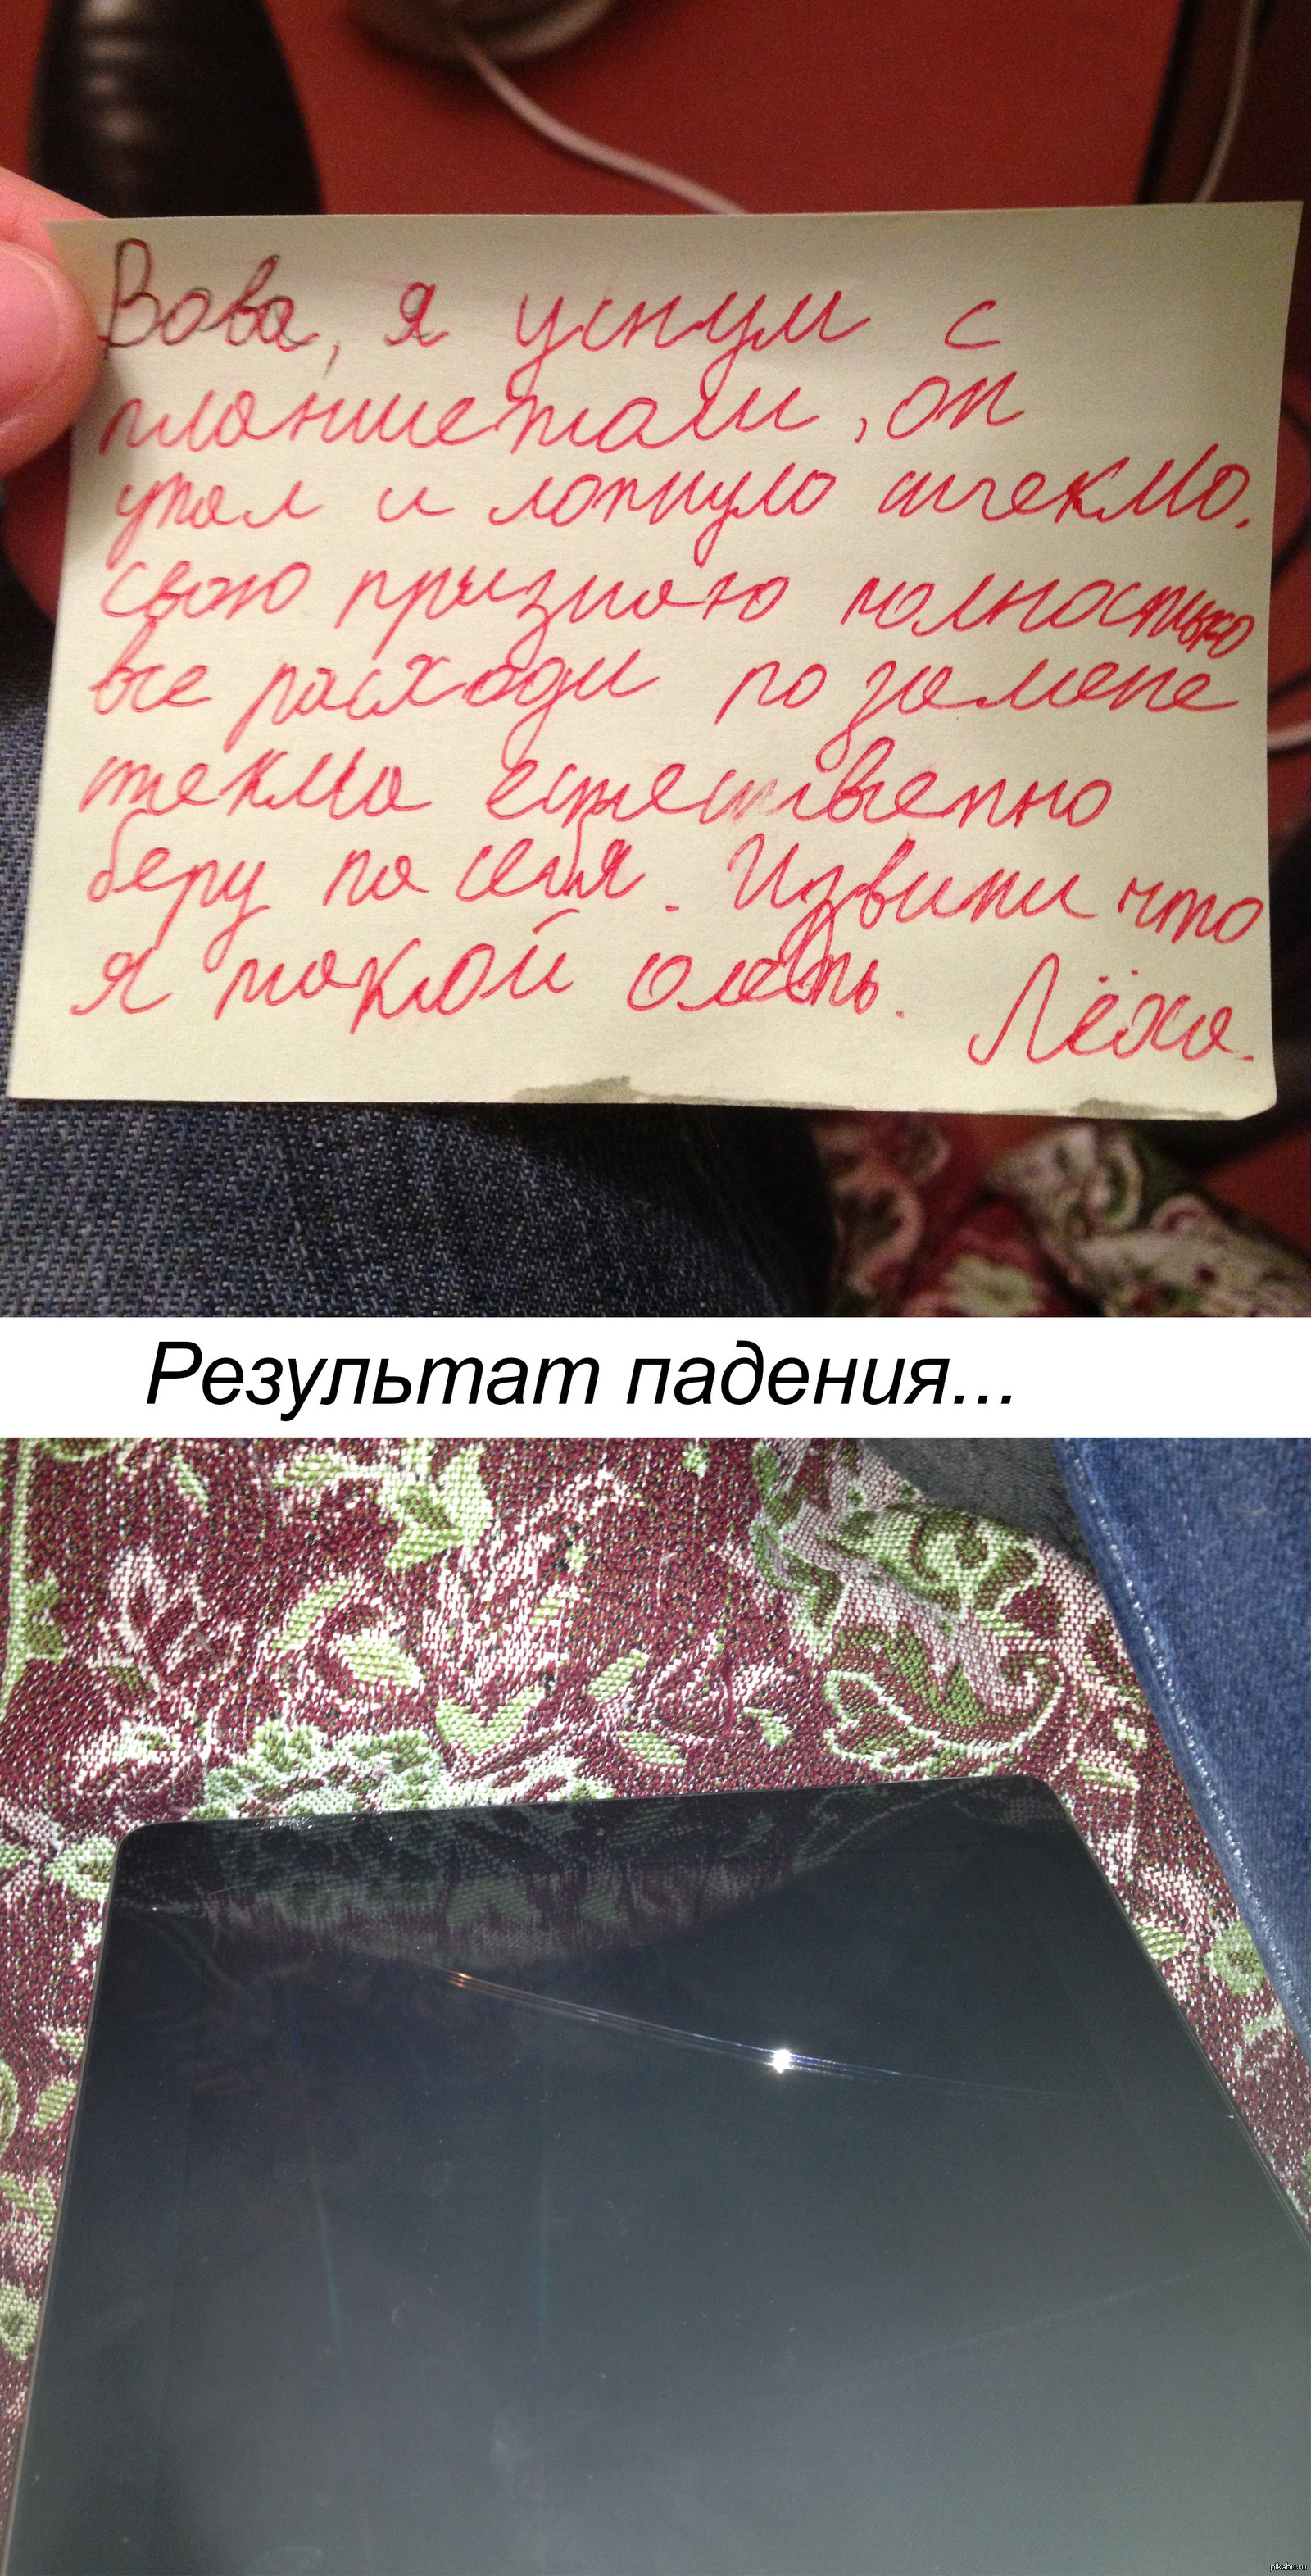 Вова, я уснул с
планшетам, он
упал и лопнуло стекло.
свою признаю полностью
все расходы по замене
текла естественно
беру на себя. Извини что
я такой олень. Лёха.
Результат падения...
pikabu.ru